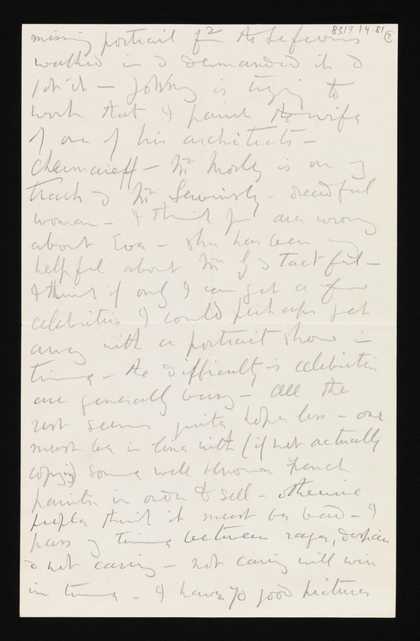 8319.14.81
missing portrait from the Lefevres
walked in & demanded it &
got it — Johnny is trying to
work that I paint the wife
of one of his architects —
Chermaieff — Mr Morley is on
track of Mr — dreadful
woman — I think you are wrong
about Eva — she has been very
helpful about Mr & tactful —
I think if only I can get a few
celebrities I could perhaps get
away with a portrait show in
time — the difficulty is celebrities
are generally busy — all the
rest seems quite hopeless — one
must be in line with (if not actually
copying) some well known french
painter in order to sell — otherwise
people think it must be bad — I
pass my time between rage, despair
& not caring — not caring will win
in time — I have 70 good pictures